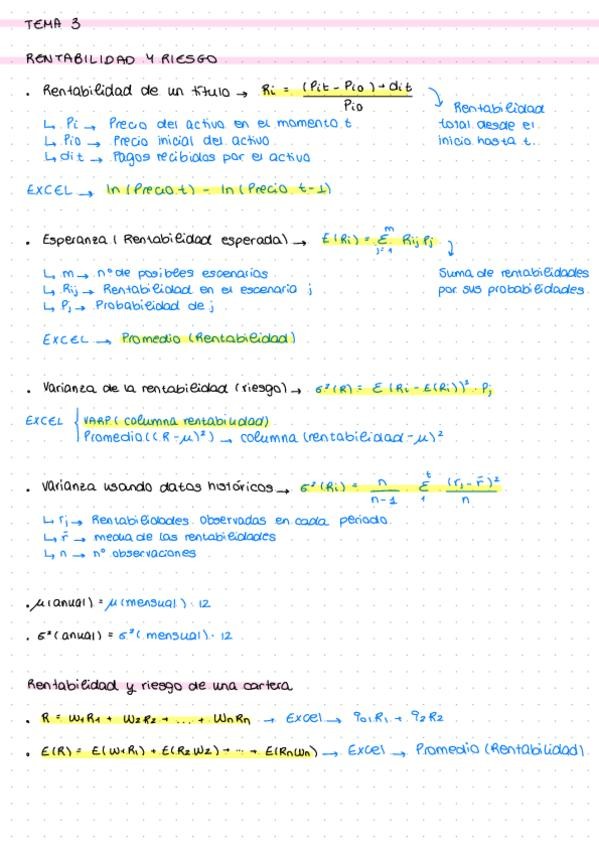 TEMA 3
RENTABILIDAD Y RIESGO
• Rentabilidad de un título → Ri = (Pit - Pio) + dit / Pio
Rentabilidad total desde el inicio hasta t.
↳ Pi → Precio del activo en el momento t
↳ Pio → Precio inicial del activo
↳ dit → Pagos recibidos por el activo
EXCEL → ln (Precio t) - ln (Precio t-1)
• Esperanza (Rentabilidad esperada) → E(Ri) = Σ Rij Pj
m
j=1
Suma de rentabilidades por sus probabilidades
↳ m → nº de posibles escenarios
↳ Rij → Rentabilidad en el escenario j
↳ Pj → Probabilidad de j
EXCEL → Promedio (Rentabilidad)
• Varianza de la rentabilidad (riesgo) → σ²(R) = Σ (Ri - E(Ri))² · Pj
EXCEL { VARP (columna rentabilidad)
Promedio ((R-μ)²) → columna (rentabilidad - μ)²
• Varianza usando datos históricos → σ²(Ri) = n / n-1 · Σ (rj - r̄)² / n
t
1
↳ rj → Rentabilidades observadas en cada periodo
↳ r̄ → media de las rentabilidades
↳ n → nº observaciones
• μ(anual) = μ(mensual) · 12
• σ²(anual) = σ²(mensual) · 12
Rentabilidad y riesgo de una cartera
• R = W1R1 + W2R2 + ... + WnRn → Excel → %1R1 + %2R2
• E(R) = E(W1R1) + E(R2W2) + ... + E(RnWn) → Excel → Promedio (Rentabilidad)